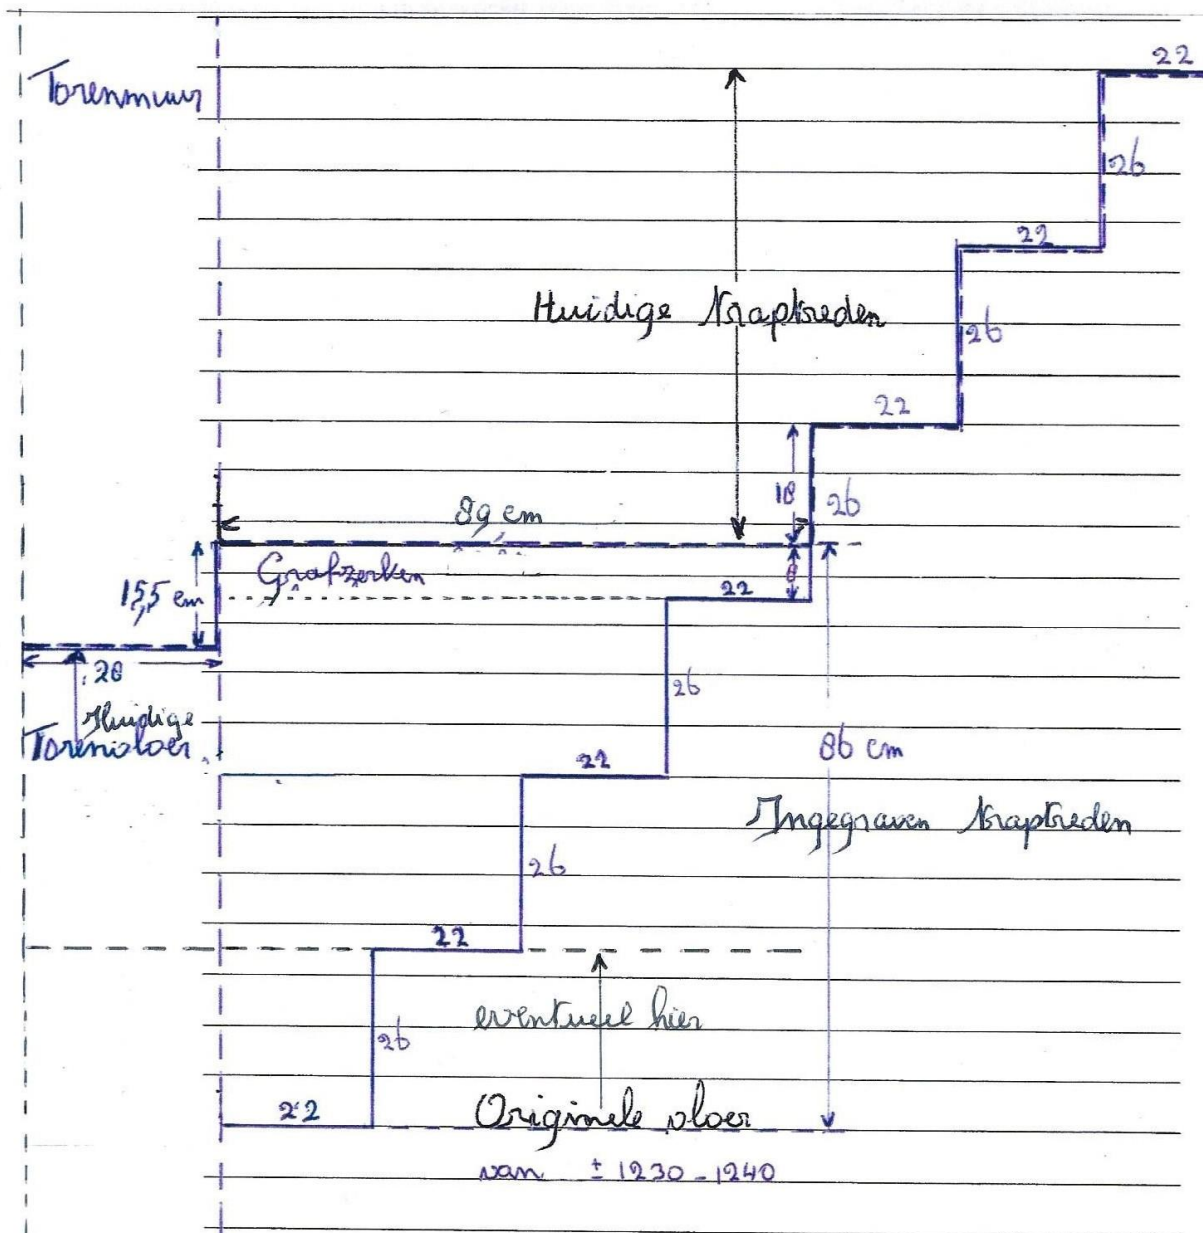 22
Torenmuur
26
22
Huidige traptreden
26
22
18
26
89 cm
Grafzerken
8
15,5 cm
22
28
26
Huidige
Torenvloer
22
86 cm
Ingegraven traptreden
26
22
eventueel hier
26
22
Originele vloer
van ± 1230-1240